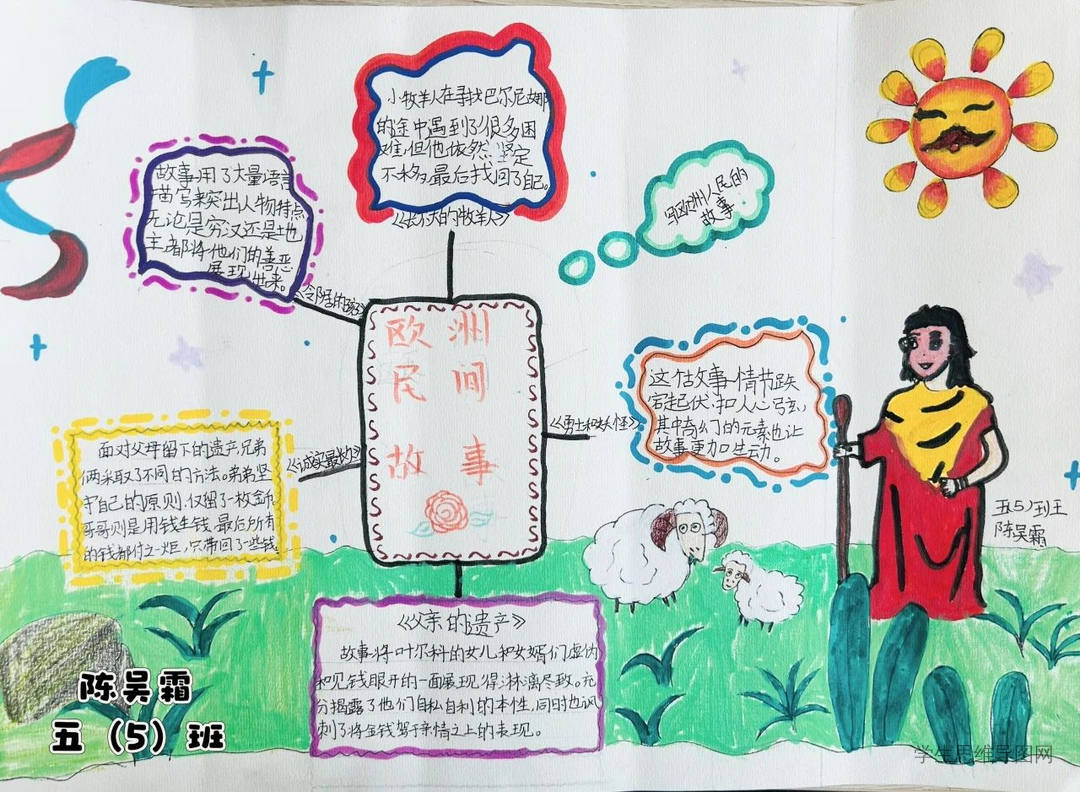 小牧羊人在寻找巴尔尼娜
的途中遇到了很多困
难,但他依然坚定
不移,最后找回了自己。
《长不大的牧羊人》
写欧洲人民的
故事
故事用了大量语言
描写来突出人物特点
无论是穷汉还是地
主都将他们的善恶
展现出来。
欧洲
民间
故事
这个故事情节跌
宕起伏,扣人心弦,
其中奇幻的元素也让
故事更加生动。
《勇士和妖怪》
面对父母留下的遗产,兄弟
俩采取了不同的方法。弟弟坚
守自己的原则,仅留了一枚金币
哥哥则是用钱生钱,最后所有
的钱都付之一炬,只带回了一些钱。
《诚实最妙》
五(5)班王
陈吴霜
《父亲的遗产》
故事将叶尔科的女儿和女婿们虚伪
和见钱眼开的一面展现得淋漓尽致。充
分揭露了他们自私自利的本性,同时也讽
刺了将金钱驾于亲情之上的表现。
陈吴霜
五(5)班
学生思维导图网